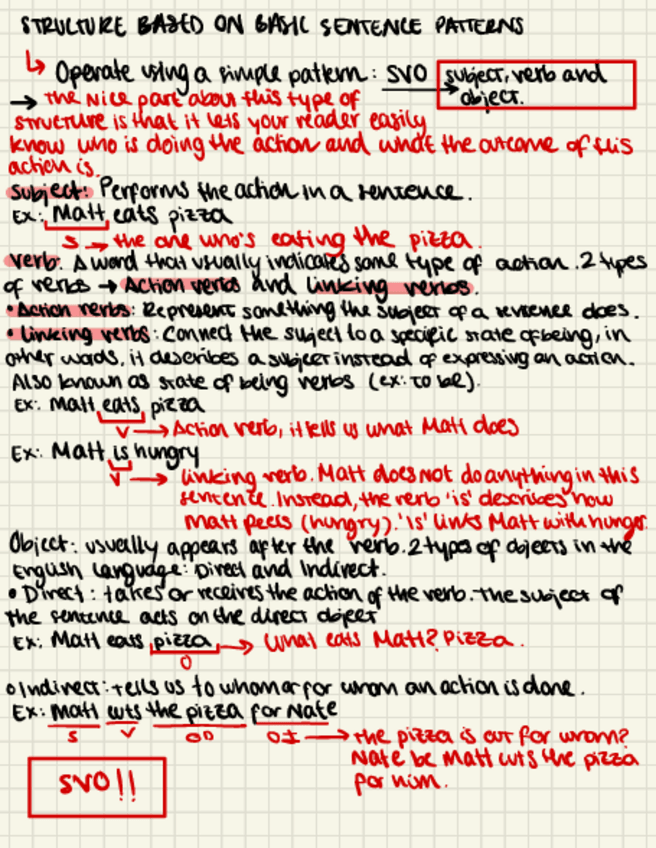 STRUCTURE BASED ON BASIC SENTENCE PATTERNS
↳ Operate using a simple pattern: SVO → subject, verb and
object.
→ the nice part about this type of
structure is that it lets your reader easily
know who is doing the action and what the outcome of this
action is.
subject: Performs the action in a sentence.
Ex: Matt eats pizza
S → the one who's eating the pizza.
verb: A word that usually indicates some type of action. 2 types
of verbs → Action verbs and linking verbs.
• Action verbs: Represent something the subject of a sentence does.
• linking verbs: Connect the subject to a specific state of being, in
other words, it describes a subject instead of expressing an action.
Also known as state of being verbs (ex: to be).
Ex: Matt eats pizza
V → Action verb, it tells us what Matt does
Ex: Matt is hungry
V → linking verb. Matt does not do anything in this
sentence. Instead, the verb 'is' describes how
Matt feels (hungry). 'Is' links Matt with hunger.
Object: usually appears after the verb. 2 types of objects in the
English language: Direct and Indirect.
• Direct: takes or receives the action of the verb. The subject of
the sentence acts on the direct object
Ex: Matt eats pizza → What eats Matt? Pizza.
O
• Indirect: tells us to whom or for whom an action is done.
Ex: Matt cuts the pizza for Nate
S V OD OI → the pizza is cut for whom?
Nate bc Matt cuts the pizza
for him.
SVO!!